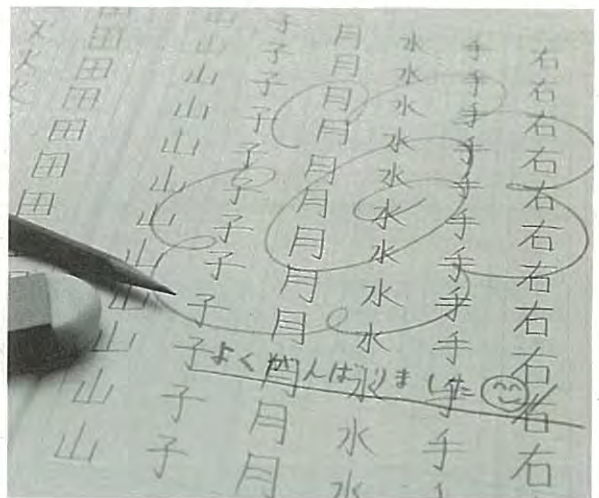 右右右右右右右右右右右
手手手手手手手手手手手
水水水水水水水水水水水水
月月月月月月月月月月月月
子子子子子子子子子子子子
山山山山山山山山山山山
田田田田田田
よくがんばりました